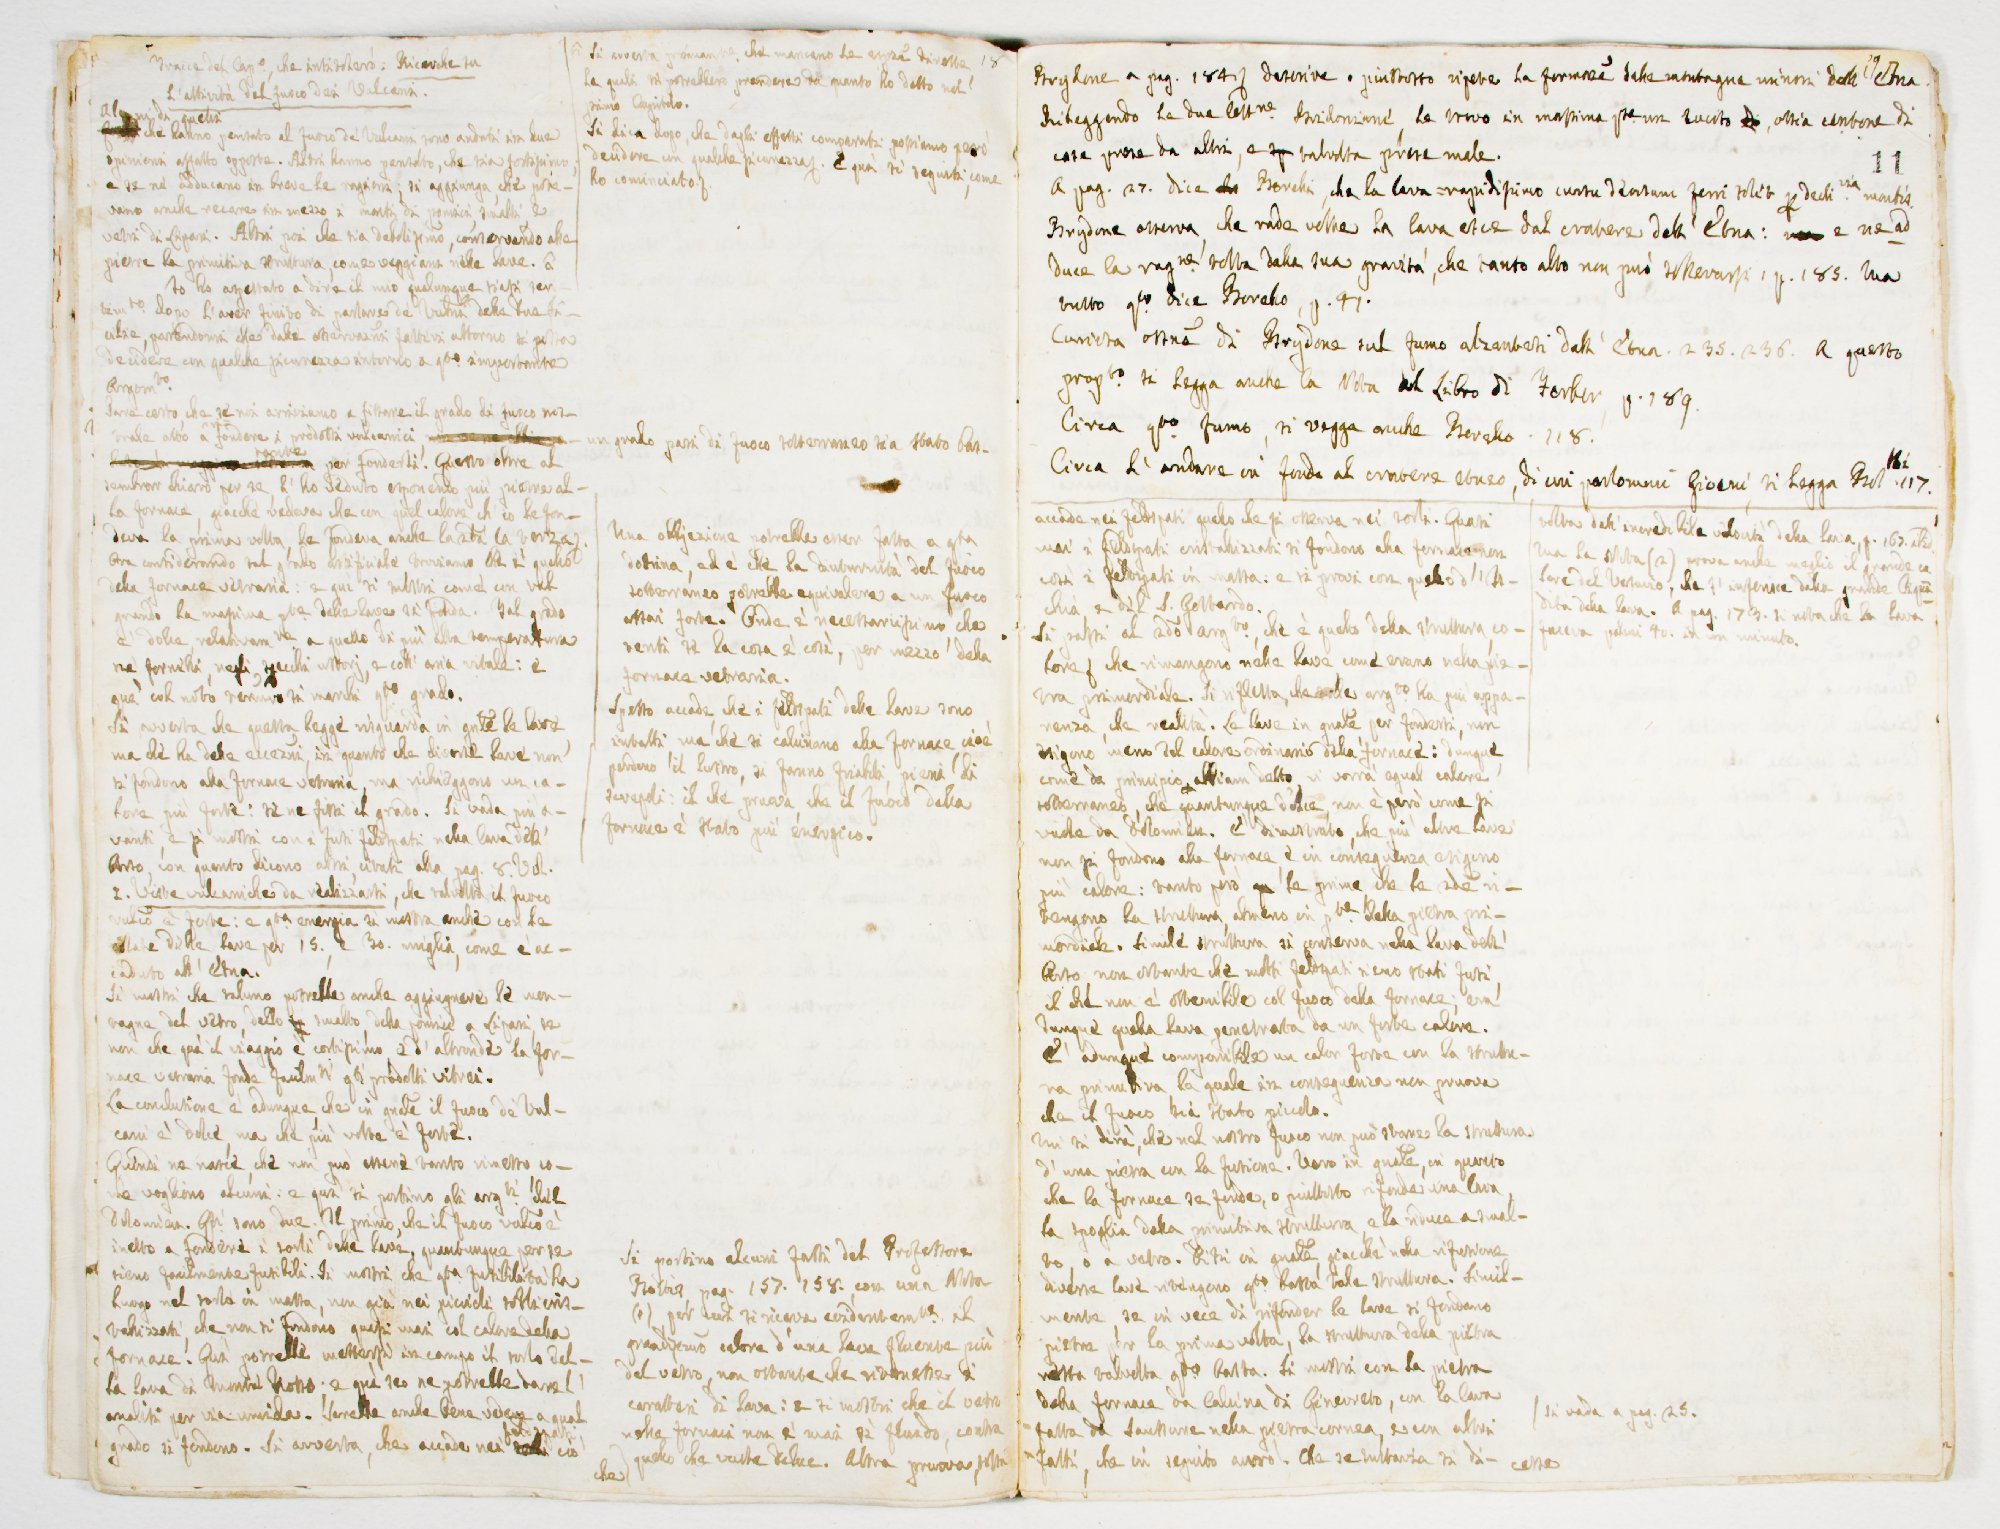 Tracce del Cap.º, che intitolerò: Ricerche su
L'attività del fuoco dei Vulcani.
Alcuni di quelli
che hanno pensato al fuoco de' Vulcani sono andati in due
opinioni affatto opposte. Altri hanno pensato, che sia fortissimo,
e se ne adducano in breve le ragioni: si aggiunga, che pote-
vano anche recare in mezzo i monti di pomici smalti e
vetri di Lipari. Altri poi che sia debolissimo, conservando alle
pietre la primitiva struttura, come veggiamo nelle lave.
Io ho aspettato a dire il mio qualunque siasi sen-
tim.to dopo l'aver finito di parlare de' Vulcani delle due Si-
cilie, parendomi che dalle osservazioni fattevi attorno si possa
decidere con qualche sicurezza intorno a q.to importante
Argom.to.
Pare certo che se noi arriviamo a fissare il grado di fuoco nos-
trale atto a fondere i prodotti vulcanici
per fonderli. Questo oltre al
sembrar chiaro per se, l'ho veduto esponendo più pietre al-
la fornace, giacché vedeva che con quel calore ch'io le fon-
deva la prima volta, le fondeva anche la 2da la terza.
Ora considerando tal grado artificiale troviamo che è quello
della fornace vetraria: e qui si mostri come con tal
grado la massima p.te delle lave si fonda. Tal grado
è dolce, relativam.te a quello di più alta temperatura
ne' fornelli, negli specchi ustorj, e coll'aria vitale: e
qui col noto si marchi q.to grado.
Si avverta che questa legge riguarda in gnle le lave
ma che ha delle eccezni, in quanto che diverse lave non
si fondono alla fornace vetraria, ma richieggono un ca-
lore più forte: se ne fissi il grado. Si vada più a-
vanti, e si mostri con i fusi feldspati nella lava dell'
Arso, con quanto dicono altri citati alla pag. 8. Vol.
2. Viste vulcaniche da realizzarsi, che talvolta il fuoco
vulco è forte: e q.ta energia si mostra anche con le
colate delle lave per 15. e 30. miglia, come è ac-
caduto all'Etna.
Si mostri che taluno potrebbe anche aggiugnere le mon-
tagne del vetro, dello smalto, della pomice a Lipari, se
non che quì il viaggio è cortissimo, e d'altronde la for-
nace vetraria fonde facilm.te q.ti prodotti vitrei.
La conclusione è adunque che in gnale il fuoco de' Vul-
cani è dolce, ma che più volte è forte.
Quindi ne nasce che non può essere tanto rimesso co-
me vogliono alcuni: e quì si portino gli arg.ti del
Dolomieu. Q.ti sono due. Il primo, che il fuoco vulco è
inetto a fondere i sorli delle lave, quantunque per se
sieno facilmente fusibili. Si mostri che q.ta fusibilità ha
luogo nel sorlo in massa, non già nei piccioli sorli cris-
tallizzati, che non si fondono quasi mai col calore della
fornace. Quì potrebbe mettersi in campo il sorlo del-
la lava di Monte Rosso, e quì se ne potrebbe dare l'
analisi per via umida. Sarebbe anche bene vedere a qual
grado si fondono. Si avverta, che accade nei feldspati ciò
Si avverta primam.te che mancano le esp.ze dirette 18
le quali si potrebbero prendere da quanto ho detto nel
primo Capitolo.
Si dica dopo, che dagli effetti comparati possiamo però
decidere con qualche sicurezza. E quì si seguiti, come
ho cominciato.
un grado pari di fuoco sotterraneo sia stato bas-
Una obbjezione potrebbe esser fatta a q.ta
dottrina, ed è che la diuturnità del fuoco
sotterraneo potrebbe equivalere a un fuoco
assai forte. Onde è necessarissimo che
tenti se la cosa è così, per mezzo della
fornace vetraria.
Spesso accade che i feldspati delle lave sono
intatti ma che si calcinano alla fornace cioè
perdono il lustro, si fanno friabili, pieni di
screpoli: il che prova che il fuoco della
fornace è stato più energico.
Si portino alcuni fatti del Professore
Bottis, pag. 157. 158. con una Nota
per cui si ricava evidentem.te il
grandissimo calore d'una lava fluente più
del vetro, non ostante che ritenesse i
caratteri di lava: e si mostri che il vetro
nelle fornaci non è mai sì fluido, contra
quello che vuole Deluc. Altra pruova, tolta
che
Brydone a pag. 184 descrive o piuttosto ripete la formazne delle montagne minori dell'Etna.
Rileggendo le due lett.re Bridoniane, le trovo in massima p.te un sucito , ossia centone di
cose prese da altri, e talvolta prese male.
11
A pag. 27. dice Borelli, che la lava rapidissimo cursu decurrunt ferri solet p decli.via montis.
Brydone osserva, che rade volte la lava esce dal cratere dell'Etna: e ne ad
duce la rag.ne tolta dalla sua gravità, che tanto alto non può sollevarsi, p. 185. Ma
tutto q.to dice Borello, p. 41.
Curiosa ossne di Brydone sul fumo alzantesi dall'Etna. 235. 236. A questo
prop.to si legga anche la Nota al Libro di Ferber, p. 189.
Circa q.to fumo, si vegga anche Borello. 118.
Circa l'andare in fondo al cratere etneo, di cui parlommi Gioeni, si legga Borelli 117.
accade nei feldspati quello che si osserva nei sorli. Quasi
mai i feldspati cristallizzati si fondono alla fornace non
così i feldspati in massa: e si provi con quello d'Is-
chia, e del S. Gottardo.
Si passi al 2do arg.to, che è quello della struttura, co-
lore, che rimangono nelle lave come erano nella pie-
tra primordiale. Si rifletta, che tale arg.to ha più appa-
renza, che realità. Le lave in gnale per fondersi, non
esigono meno del calore ordinario della fornace: dunque
come da principio abbiam detto, vi vorrà egual calore
sotterraneo, che quantunque dolce, non è però come si
vuole da Dolomieu. È dimostrato, che più altre lave
non si fondono alla fornace e in conseguenza esigono
più calore: tanto però le prime che le 2de ri-
tengono la struttura, almeno in p.te della pietra pri-
mordiale. Simile struttura si conserva nella lava dell'
Arso non ostante che molti feldspati sieno stati fusi
il che non è ottenibile col fuoco della fornace; era
dunque quella lava penetrata da un forte calore.
È adunque compatibile un calor forte con la struttu-
ra primitiva la quale in conseguenza non pruova
che il fuoco sia stato piccolo.
Mi si dirà, che nel nostro fuoco non può stare la struttura
d'una pietra con la fusione. Vero in gnale, in quanto
che la fornace se fonde, o piuttosto rifonde una lava,
la spoglia della primitiva struttura e la riduce a smal-
to, o a vetro. Dissi in gnale giacché nella rifusione
diverse lave ritengono q.to bassa tale struttura. Simil-
mente, se in vece di rifonder le lave si fondano
pietre per la prima volta, la struttura della pietra
resta talvolta q.to basta. Si mostri con la pietra
della fornace da Calcina di Ginevreto, con la lava
fatta da Saussure nella pietra cornea, e con altri
fatti, che in seguito avrò. Che se tuttavia si di- cesse
volta dell'incredibile velocità della lava, p. 163.
Ma la Nota (2) prova anche meglio il grande ca
lore del Vesuvio, che s'inferisce dalla grande liqui
dità della lava. A pag. 173. si nota che la lava
faceva passi 40. in un minuto.
si vada a pag. 25.